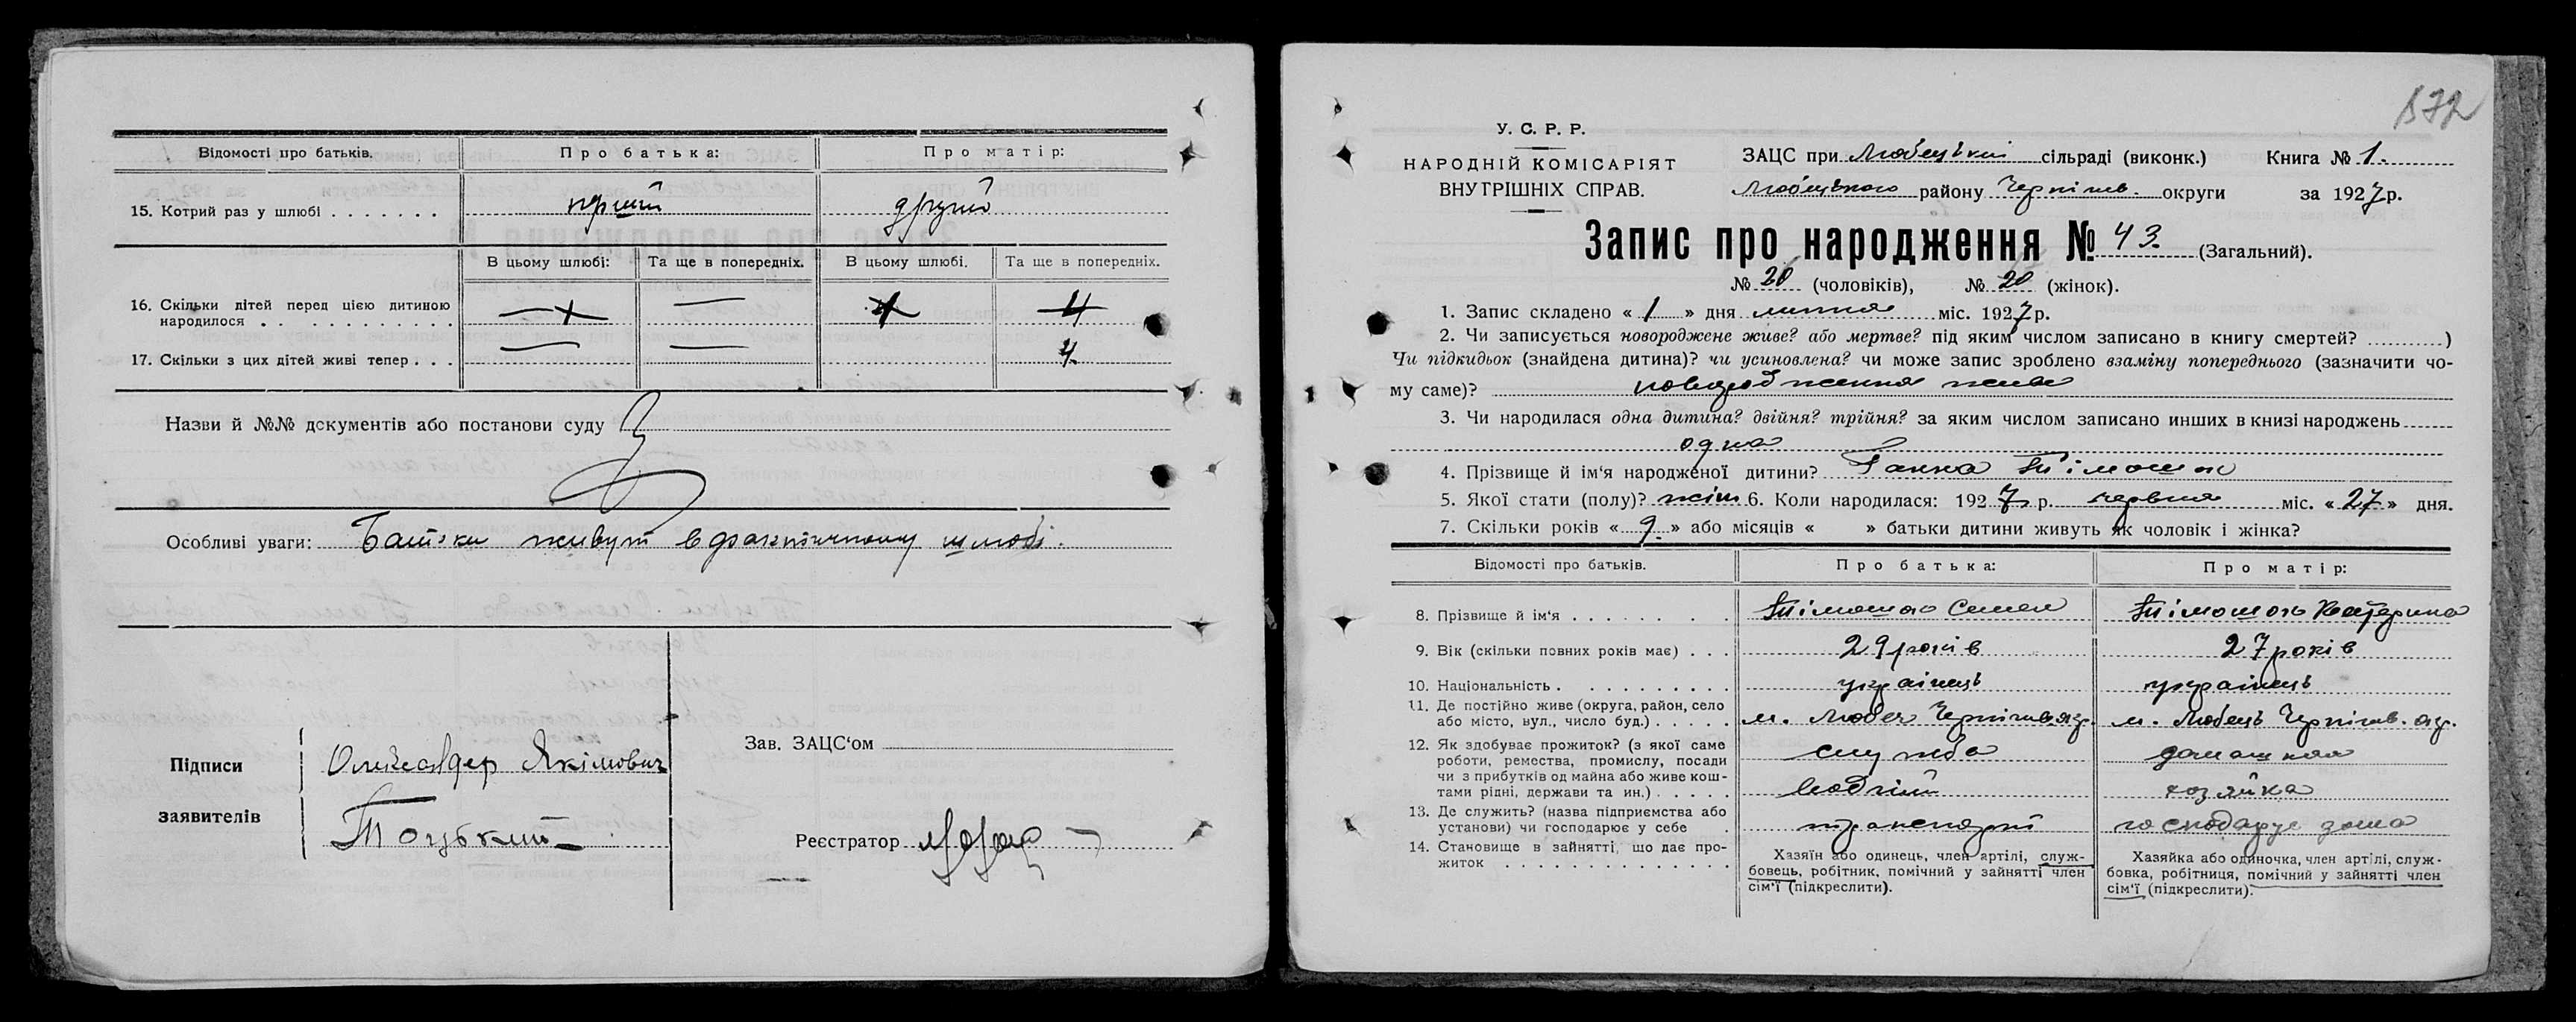 Відомості про батьків. Про батька: Про матір:
15. Котрий раз у шлюбі . . . . . . . перший другий
В цьому шлюбі: Та ще в попередніх. В цьому шлюбі. Та ще в попередніх.
16. Скільки дітей перед цією дитиною
народилося . . . . . . . . . . . — — 4
17. Скільки з цих дітей живі тепер . . . — — 4
Назви й №№ документів або постанови суду
Особливі уваги: Батьки живут в фактичному шлюбі.
Підписи
заявителів
Олександер Якімович
Тоцький
Зав. ЗАЦС‘ом
Реєстратор
172
У. С. Р. Р.
НАРОДНІЙ КОМІСАРІЯТ
ВНУТРІШНІХ СПРАВ.
ЗАЦС при Любецькій сільраді (виконк.) Книга № 1.
Любецького району Чернігів. округи за 1927 р.
Запис про народження № 43. (Загальний).
№ 20 (чоловіків), № 20 (жінок).
1. Запис складено « 1 » дня липня міс. 1927 р.
2. Чи записується новороджене живе? або мертве? під яким числом записано в книгу смертей? ...........)
Чи підкидьок (знайдена дитина)? чи усиновлена? чи може запис зроблено взаміну попереднього (зазначити чо-
му саме)? живе
3. Чи народилася одна дитина? двійня? трійня? за яким числом записано инших в книзі народжень
одна
4. Прізвище й ім‘я народженої дитини? Ганна Тімошок
5. Якої стати (полу)? жін. 6. Коли народилася: 1927 р. червня міс. « 27 » дня.
7. Скільки років « 9 » або місяців « » батьки дитини живуть як чоловік і жінка?
Відомості про батьків. Про батька: Про матір:
8. Прізвище й ім‘я . . . . . . . . Тімошок Семен Тімошок Катерина
9. Вік (скільки повних років має) . . . 29 років 27 років
10. Національність . . . . . . . . . . українець українець
11. Де постійно живе (округа, район, село
або місто, вул., число буд.) . . . . . м. Любеч Чернігів. окр. м. Любець Чернігів. окр.
12. Як здобуває прожиток? (з якої саме
роботи, ремества, промислу, посади
чи з прибутків од майна або живе кош-
тами рідні, держави та ин.) . . . . .
служба
водній
домашняя
хозяйка
13. Де служить? (назва підприємства або
установи) чи господарює у себе . транспорт господарує дома
14. Становище в зайнятті, що дає про-
житок . . . . . . . . . . . . .
Хазяїн або одинець, член артілі, служ-
бовець, робітник, помічний у зайнятті член
сім‘ї (підкреслити).
Хазяйка або одиночка, член артілі, служ-
бовка, робітниця, помічний у зайнятті член
сім‘ї (підкреслити).